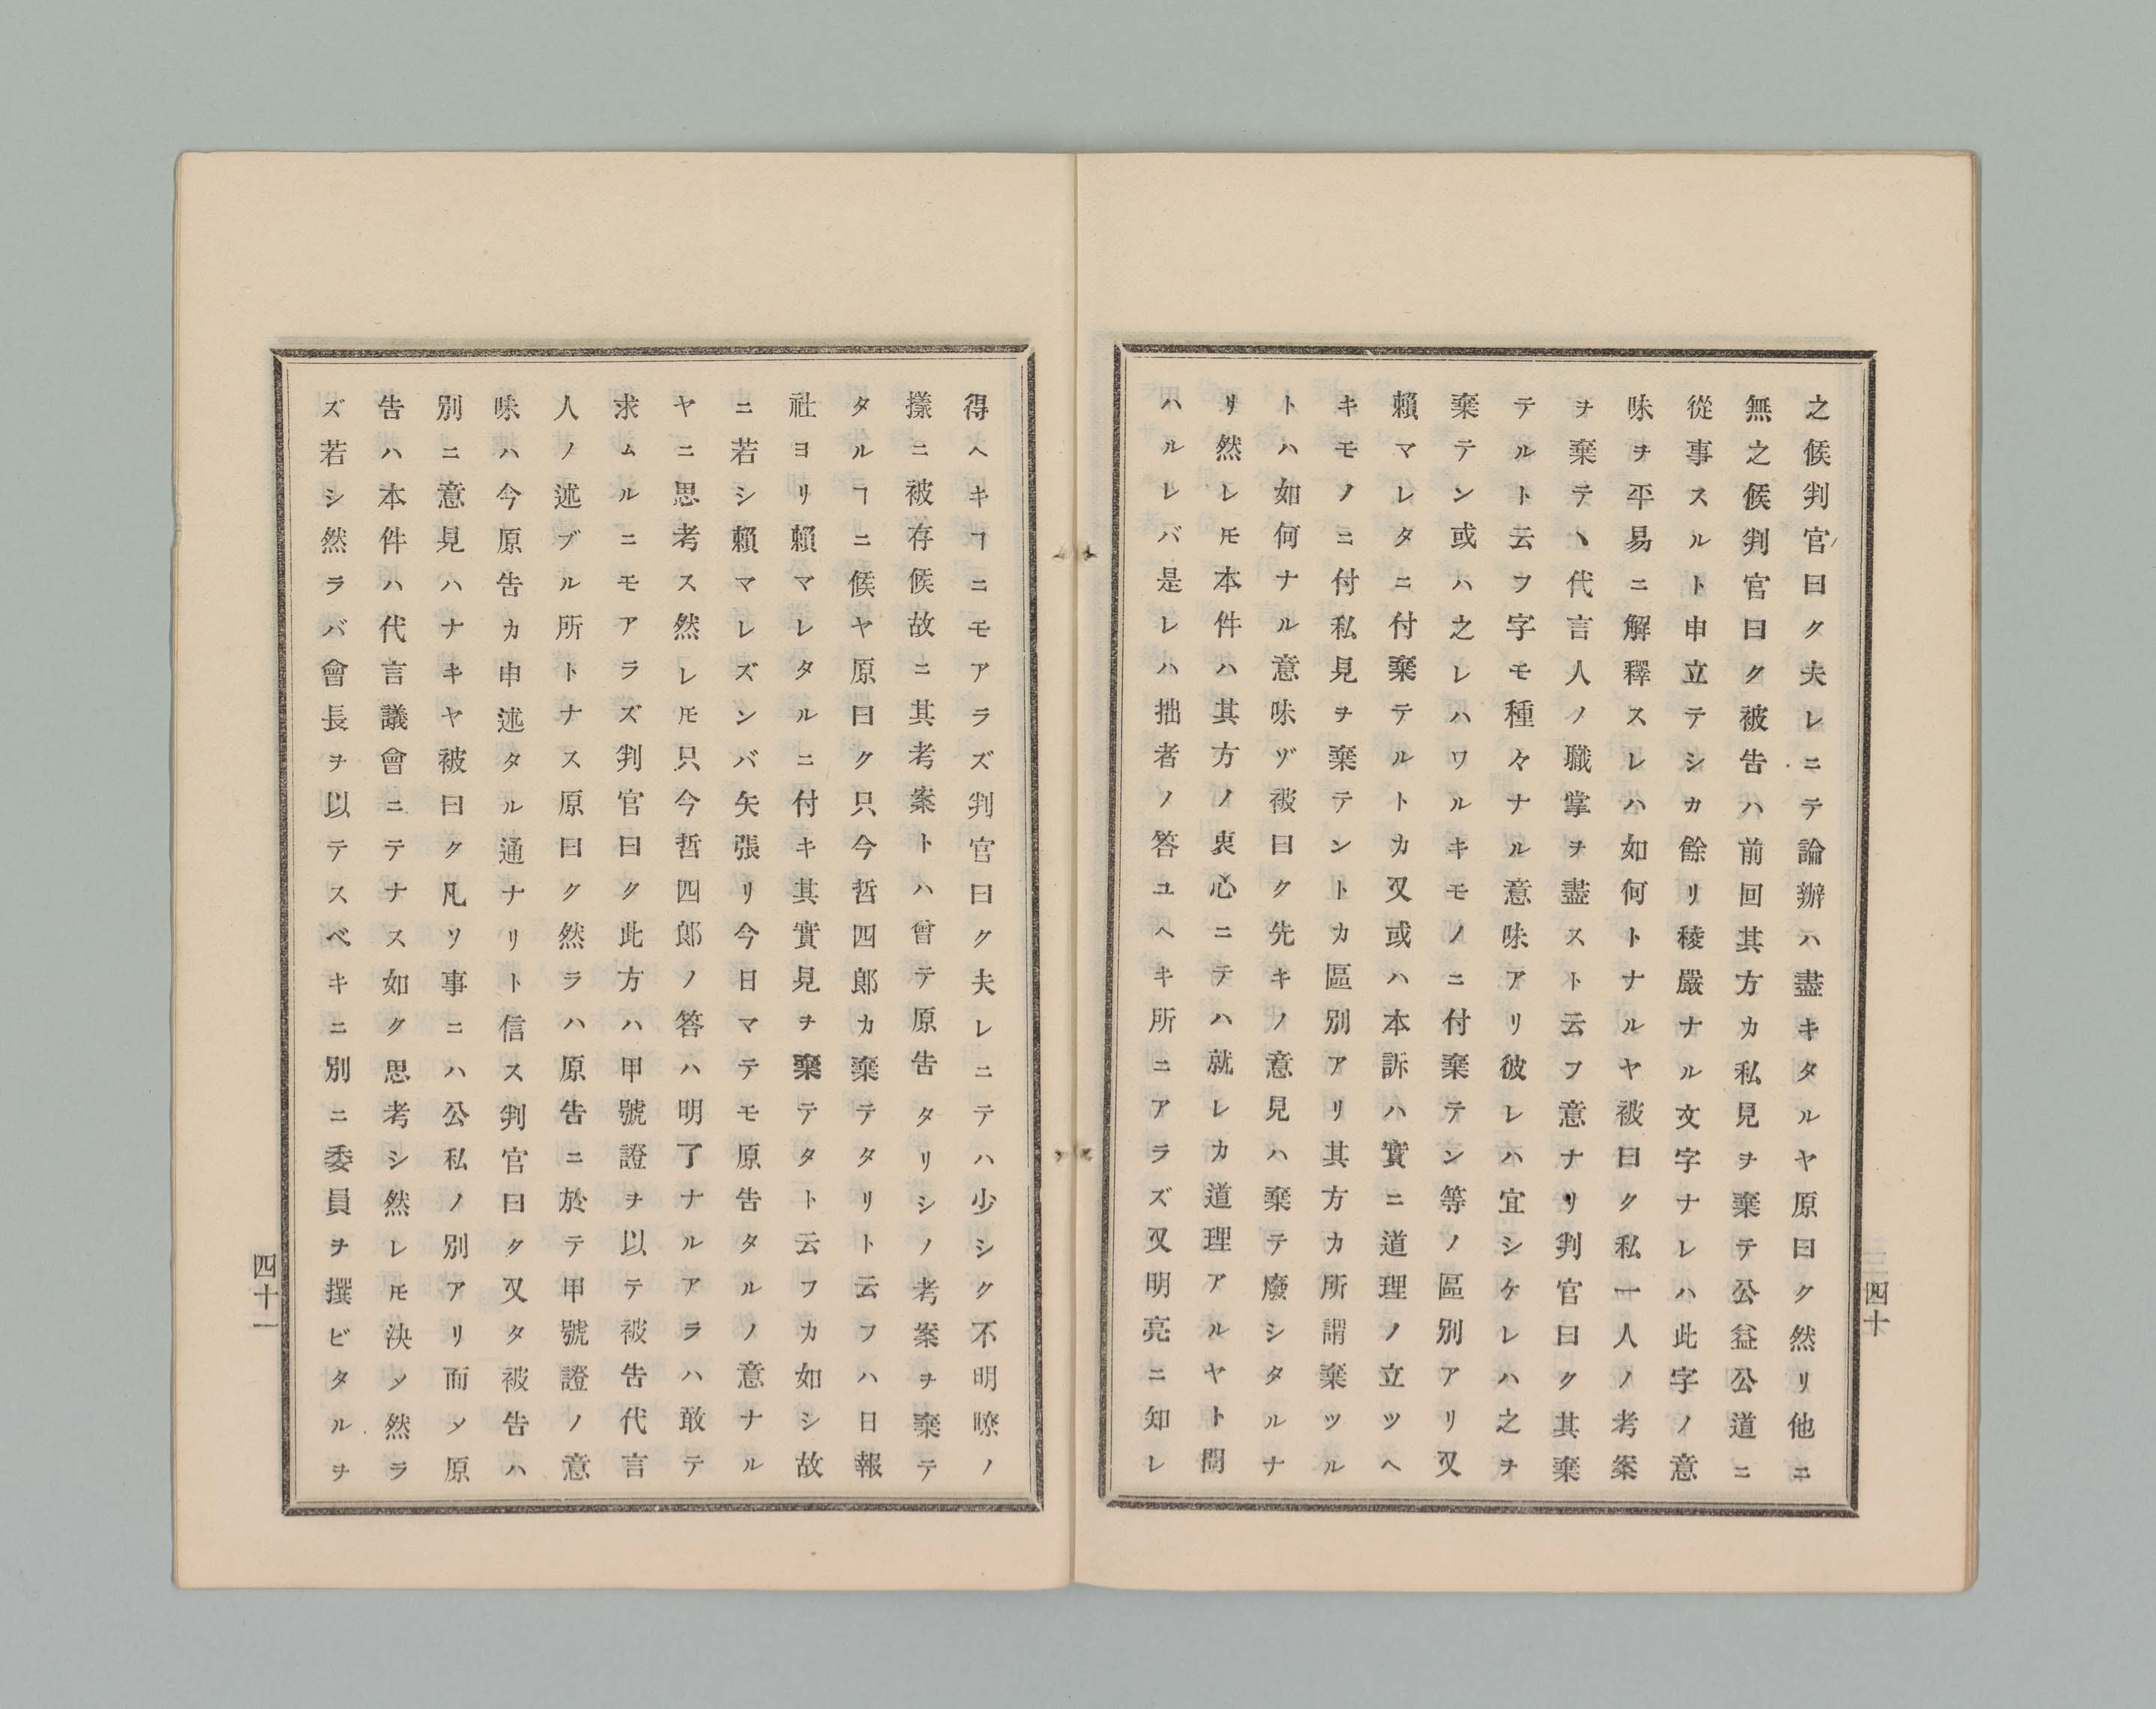 之候判官曰ク夫レニテ論辨ハ盡キタルヤ原曰ク然リ他ニ
無之候判官曰ク被告ハ前回其方カ私見ヲ棄テ公益公道ニ
從事スルト申立テシカ餘リ稜嚴ナル文字ナレハ此字ノ意
味ヲ平易ニ解釋スレハ如何トナルヤ被曰ク私一人ノ考案
ヲ棄テヽ代言人ノ職掌ヲ盡スト云フ意ナリ判官曰ク其棄
テルト云フ字モ種々ナル意味アリ彼レハ宜シケレハ之ヲ
棄テン或ハ之レハワルキモノニ付棄テン等ノ區別アリ又
賴マレタニ付棄テルトカ又或ハ本訴ハ實ニ道理ノ立ツヘ
キモノニ付私見ヲ棄テントカ區別アリ其方カ所謂棄ツル
トハ如何ナル意味ヅ被曰ク先キノ意見ハ棄テ廢シタルナ
リ然レ𪜈本件ハ其方ノ衷心ニテハ就レカ道理アルヤト問
ハルレバ是レハ拙者ノ答ユヘキ所ニアラズ又明亮ニ知レ
四十
得ヘキヿニモアラズ判官曰ク夫レニテハ少シク不明瞭ノ
樣ニ被存候故ニ其考案トハ曾テ原告タリシノ考案ヲ棄テ
タルヿニ候ヤ原曰ク只今哲四郎カ棄テタリト云フハ日報
社ヨリ賴マレタルニ付キ其實見ヲ棄テタト云フカ如シ故
ニ若シ賴マレズンバ矢張リ今日マテモ原告タルノ意ナル
ヤニ思考ス然レ𪜈只今哲四郎ノ答ハ明了ナルアラハ敢テ
求ムルニモアラズ判官曰ク此方ハ甲號證ヲ以テ被告代言
人ノ述ブル所トナス原曰ク然ラハ原告ニ於テ甲號證ノ意
味ハ今原告カ申述タル通ナリト信ス判官曰ク又タ被告ハ
別ニ意見ハナキヤ被曰ク凡ソ事ニハ公私ノ別アリ而〆原
告ハ本件ハ代言議會ニテナス如ク思考シ然レ𪜈決〆然ラ
ズ若シ然ラバ會長ヲ以テスベキニ別ニ委員ヲ撰ビタルヲ
四十一